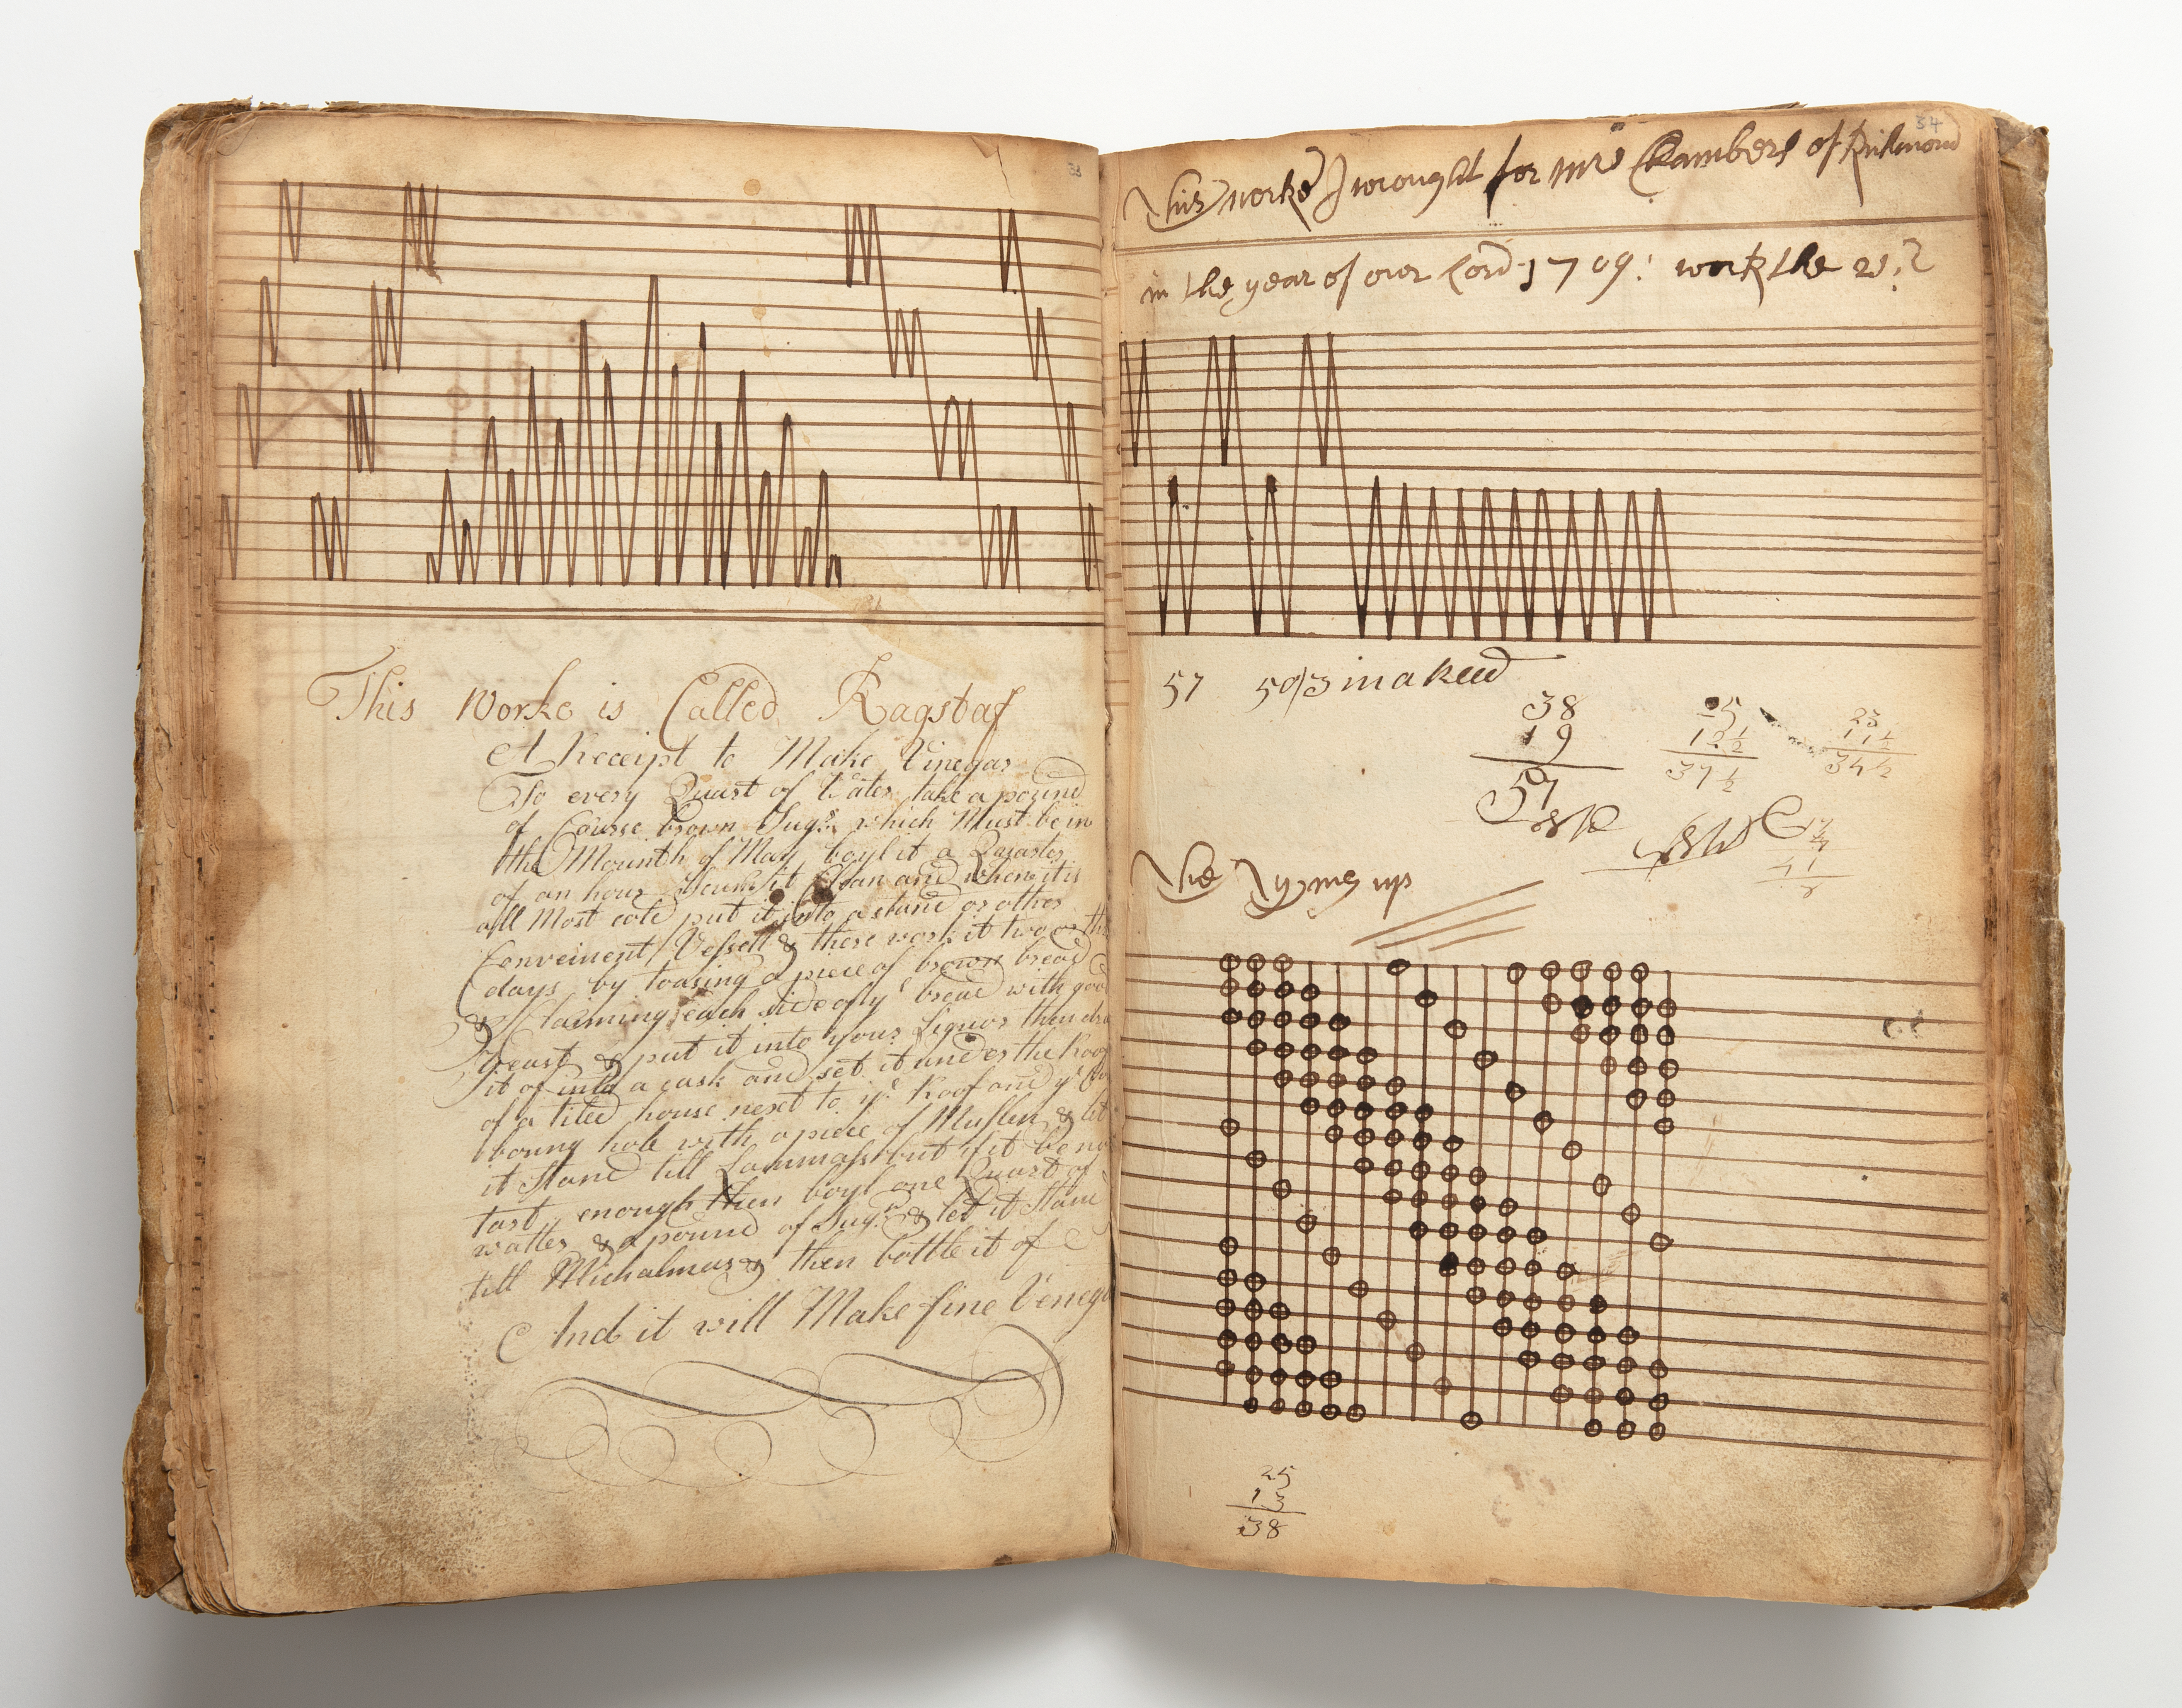 33
This Worke is Called Ragstaf
A Receipt to Make Vinegar
To every Quart of Water take a pound
of Course brown Sugr which Must be in
the Mounth of May boyl it a Quarter
of an hour Scum it Clean and when it is
all Most cold put it into a stand or other
Conveinent Vessell & there work it two or th
days by toasing a peice of brown bread
& each side of ye bread with goo
yeast & put it into your Liquor then dra
it of into a cask and set it under the Roof
of a tiled house next to ye Roof and ye
boung hole with a peice of Muslin & let
it Stand till Lammass but if it be no
tart enough then boyl one Quart of
watter & a pound of Sugr & let it Stand
till Michalmas & then bottle it of
And it will Make fine Veneg
34
This worke I wrought for mrs Chambers of Richmond
in the year of our Lord 1709: work the
57
38
19
57
25
12 1/2
37 1/2
23
11 1/2
34 1/2
The Tying up
25
13
38